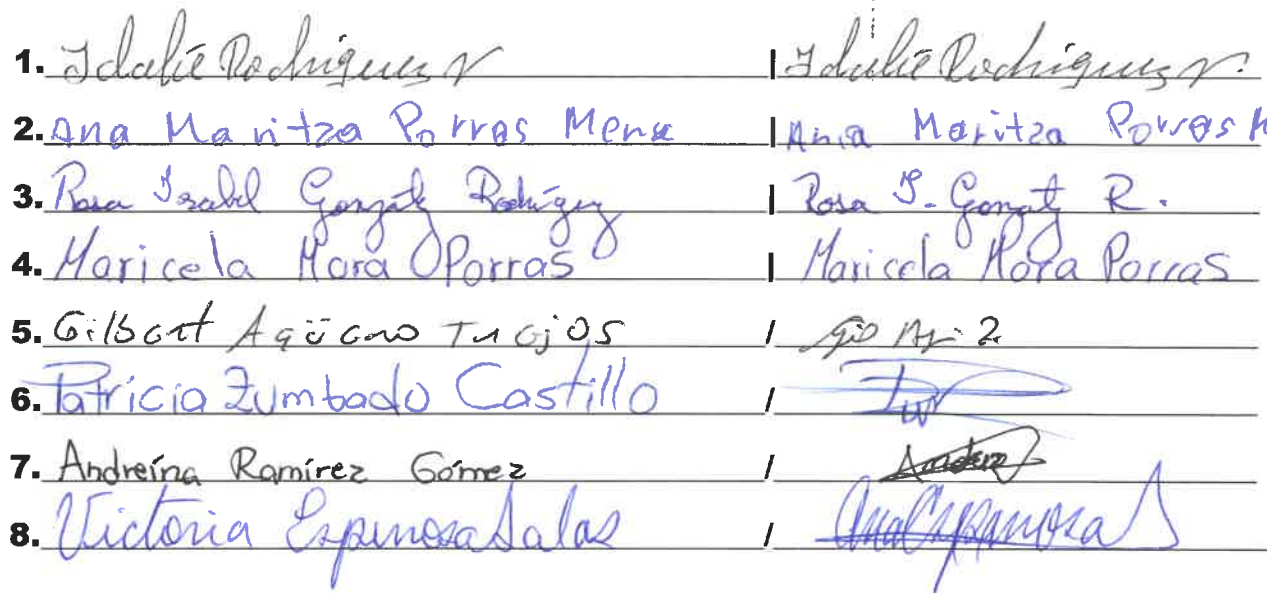 1. Idalie Rodriguez V | Idalie Rodriguez V.
2. Ana Maritza Porras Mena | Ania Maritza Porras M
3. Rosa Isabel González Rodríguez | Rosa I. Gonzalez R.
4. Maricela Mora Porras | Maricela Mora Porras
5. Gilbert Agüero Trejos /
6. Patricia Zumbado Castillo /
7. Andreína Ramírez Gómez /
8. Victoria Espinosa Salas / Ana Espinosa S